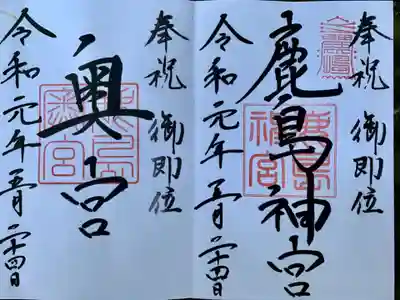 奉祝 御即位
鹿島神宮
令和元年五月二十四日
奉祝 御即位
奥宮
令和元年五月二十四日